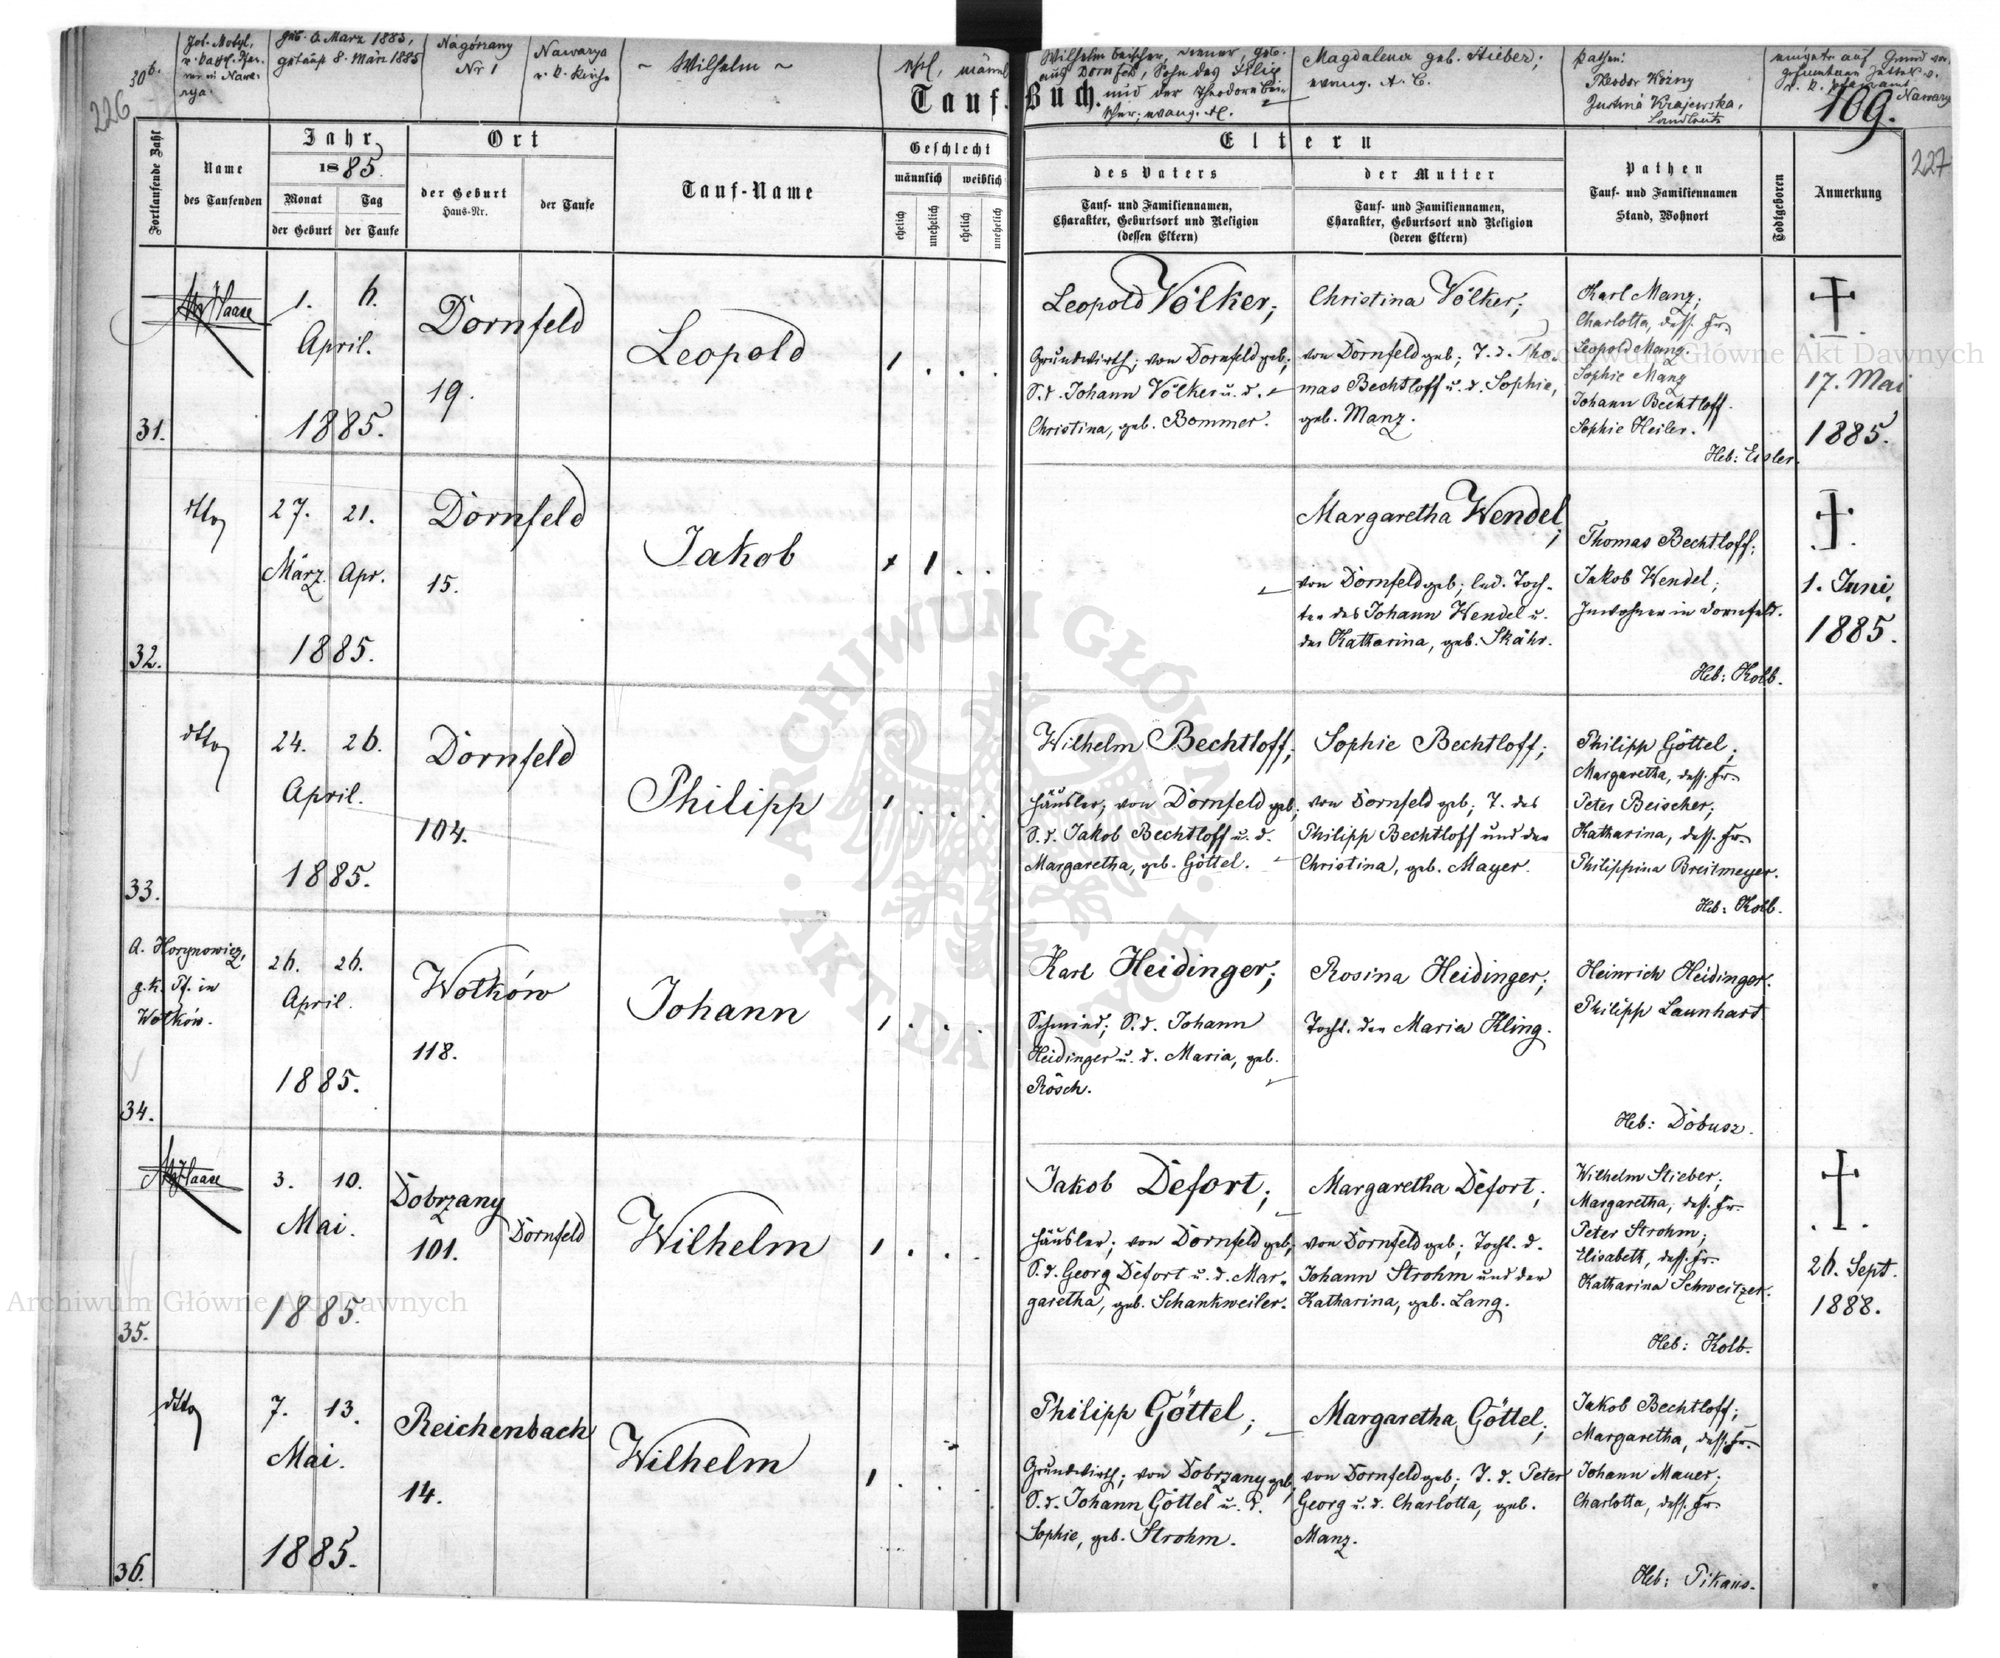 226
30b.
Joh. Motyl,
geb. 6. März 1885,
getauft 8. März 1885
Nagórzany
Nr 1
Nawarya
r. k. Kirche
~ Wilhelm ~
ehel., männl.
Wilhelm Beischer, Diener, geb.
aus Dornfeld, Sohn des Filip
und der Theodora Bei-
scher, evang. A.
Magdalena geb. Stieber;
evang. A. C.
Pathen:
Theodor Kożny
Justina Krajewska,
Landleute
auf Grund
Nawarya
Tauf-Buch.
109.
227
Fortlaufende Zahl
Name
des Taufenden
Jahr
1885.
Monat
der Geburt
Tag
der Taufe
Ort
der Geburt
Haus-Nr.
der Taufe
Tauf-Name
Geschlecht
männlich
weiblich
ehelich
unehelich
ehelich
unehelich
Eltern
des Vaters
Tauf- und Familiennamen,
Charakter, Geburtsort und Religion
(dessen Eltern)
der Mutter
Tauf- und Familiennamen,
Charakter, Geburtsort und Religion
(deren Eltern)
Pathen
Tauf- und Familiennamen
Stand, Wohnort
Todtgeboren
Anmerkung
31.
Haase
1. 6.
April.
1885.
Dornfeld
19.
Leopold
1 . . .
Leopold Völker;
Grundwirth; von Dornfeld geb;
S. d. Johann Völker u. d.
Christina, geb. Bommer.
Christina Völker;
von Dornfeld geb; T. d. Tho-
mas Bechtloff u. d. Sophie,
geb. Manz.
Karl Manz;
Charlotta, dess. Fr.
Leopold Manz.
Sophie Manz
Johann Bechtloff.
Sophie Heiler.
Heb: Eisler.
17. Mai
1885.
32.
dtto
27. 21.
März. Apr.
1885.
Dornfeld
15.
Jakob
1 . .
Margaretha Wendel;
von Dornfeld geb; led. Toch-
ter des Johann Wendel u.
der Katharina, geb. Skähr.
Thomas Bechtloff;
Jakob Wendel;
Inwohner in Dornfeld.
Heb: Kolb.
1. Juni,
1885.
33.
dtto
24. 26.
April.
1885.
Dornfeld
104.
Philipp
1 . . .
Wilhelm Bechtloff;
Häusler; von Dornfeld geb;
S. d. Jakob Bechtloff u. d.
Margaretha, geb. Göttel.
Sophie Bechtloff;
von Dornfeld geb; T. des
Philipp Bechtloff und der
Christina, geb. Mayer.
Philipp Göttel;
Margaretha, dess. Fr.
Peter Beischer;
Katharina, dess. Fr.
Philippina Breitmeyer.
Heb: Kolb.
34.
A. Horynowicz,
g. k. Pf. in
Wołków.
26. 26.
April.
1885.
Wołków
118.
Johann
1 . . .
Karl Heidinger;
Schmied; S. d. Johann
Heidinger u. d. Maria, geb.
Rösch.
Rosina Heidinger;
Tocht. der Maria Kling.
Heinrich Heidinger.
Philipp Launhart
Heb: Dobusz.
35.
Haase
3. 10.
Mai.
1885.
Dobrzany
101.
Dornfeld
Wilhelm
1 . . .
Jakob Defort;
Häusler; von Dornfeld geb;
S. d. Georg Defort u. d. Mar-
garetha, geb. Schankweiler.
Margaretha Defort;
von Dornfeld geb; Tocht. d.
Johann Strohm und der
Katharina, geb. Lang.
Wilhelm Stieber;
Margaretha, dess. Fr.
Peter Strohm;
Elisabeth, dess. Fr.
Katharina Schweitzer.
Heb: Kolb.
26. Sept.
1888.
36.
dtto
7. 13.
Mai.
1885.
Reichenbach
14.
Wilhelm
1 . . .
Philipp Göttel;
Grundwirth; von Dobrzany geb;
S. d. Johann Göttel u. d.
Sophie, geb. Strohm.
Margaretha Göttel;
von Dornfeld geb; T. d. Peter
Georg u. d. Charlotta, geb.
Manz.
Jakob Bechtloff;
Margaretha, dess. Fr.
Johann Mauer;
Charlotta, dess. Fr.
Heb: Pikaus.
Archiwum Główne Akt Dawnych
Archiwum Główne Akt Dawnych
ARCHIWUM GŁÓWNE AKT DAWNYCH